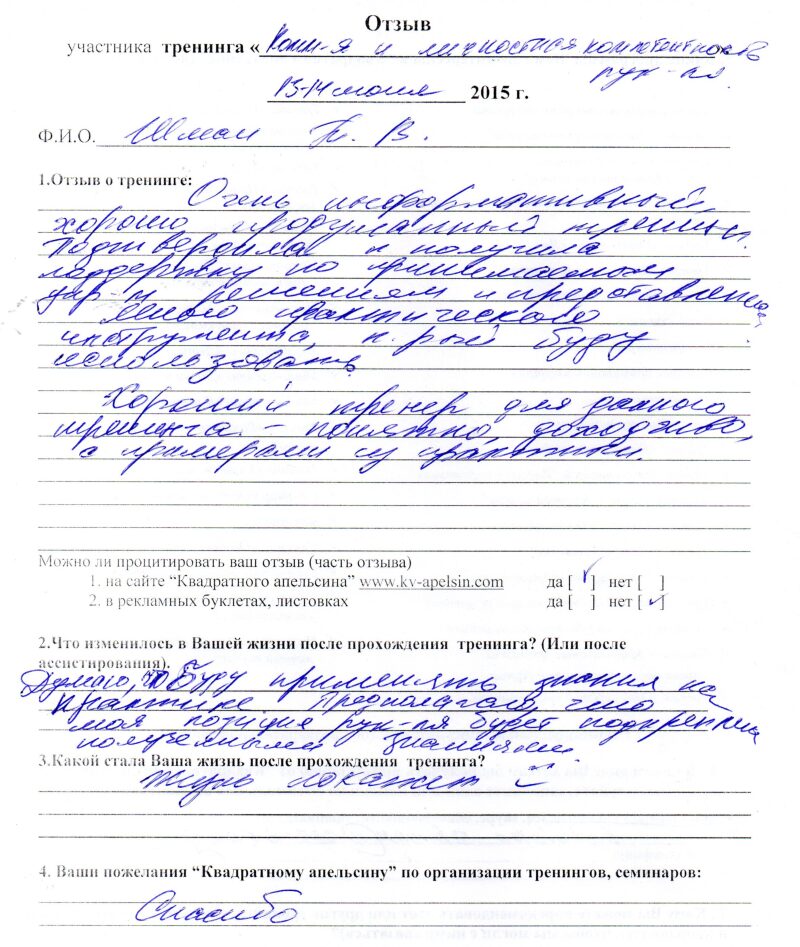 Отзыв
участника тренинга « Комм-я и личностная компетентность »
рук-ля
13-14 июля 2015 г.
Ф.И.О. Шман Т. В.
1.Отзыв о тренинге:
Очень информативный,
хорошо продуманный тренинг.
Подтвердила и получила
поддержку по принимаемым
упр-м решениям и представлена
много практического
инструмента, к-рый буду
использовать.
Хороший тренер для данного
тренинга - понятно, доходчиво,
с примерами из практики.
Можно ли процитировать ваш отзыв (часть отзыва)
1. на сайте “Квадратного апельсина” www.kv-apelsin.com да [ √ ] нет [ ]
2. в рекламных буклетах, листовках да [ ] нет [ √ ]
2.Что изменилось в Вашей жизни после прохождения тренинга? (Или после
ассистирования).
Думаю, что буду применять знания на
практике. Предполагаю, что
моя позиция рук-ля будет подкреплена
полученными знаниями
3.Какой стала Ваша жизнь после прохождения тренинга?
Жизнь покажет
4. Ваши пожелания “Квадратному апельсину” по организации тренингов, семинаров:
Спасибо